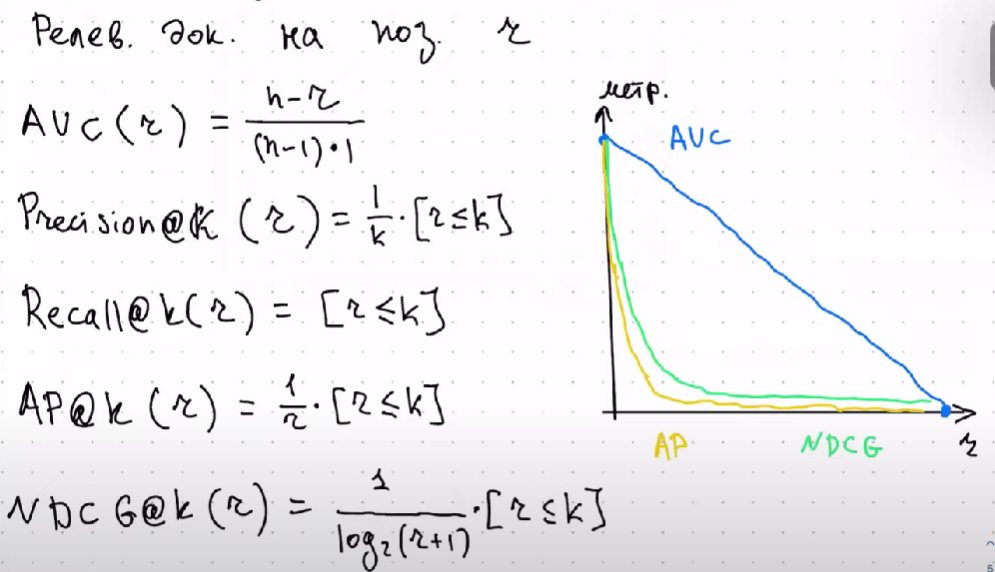 Релев. док. на поз. r
AUC(r) = \frac{n-r}{(n-1)·1}
Precision@k (r) = \frac{1}{k} · [r≤k]
Recall@k(r) = [r≤k]
AP@k (r) = \frac{1}{r} · [r≤k]
NDCG@k(r) = \frac{1}{log_2(r+1)} · [r≤k]
метр.
AUC
AP
NDCG
r
5